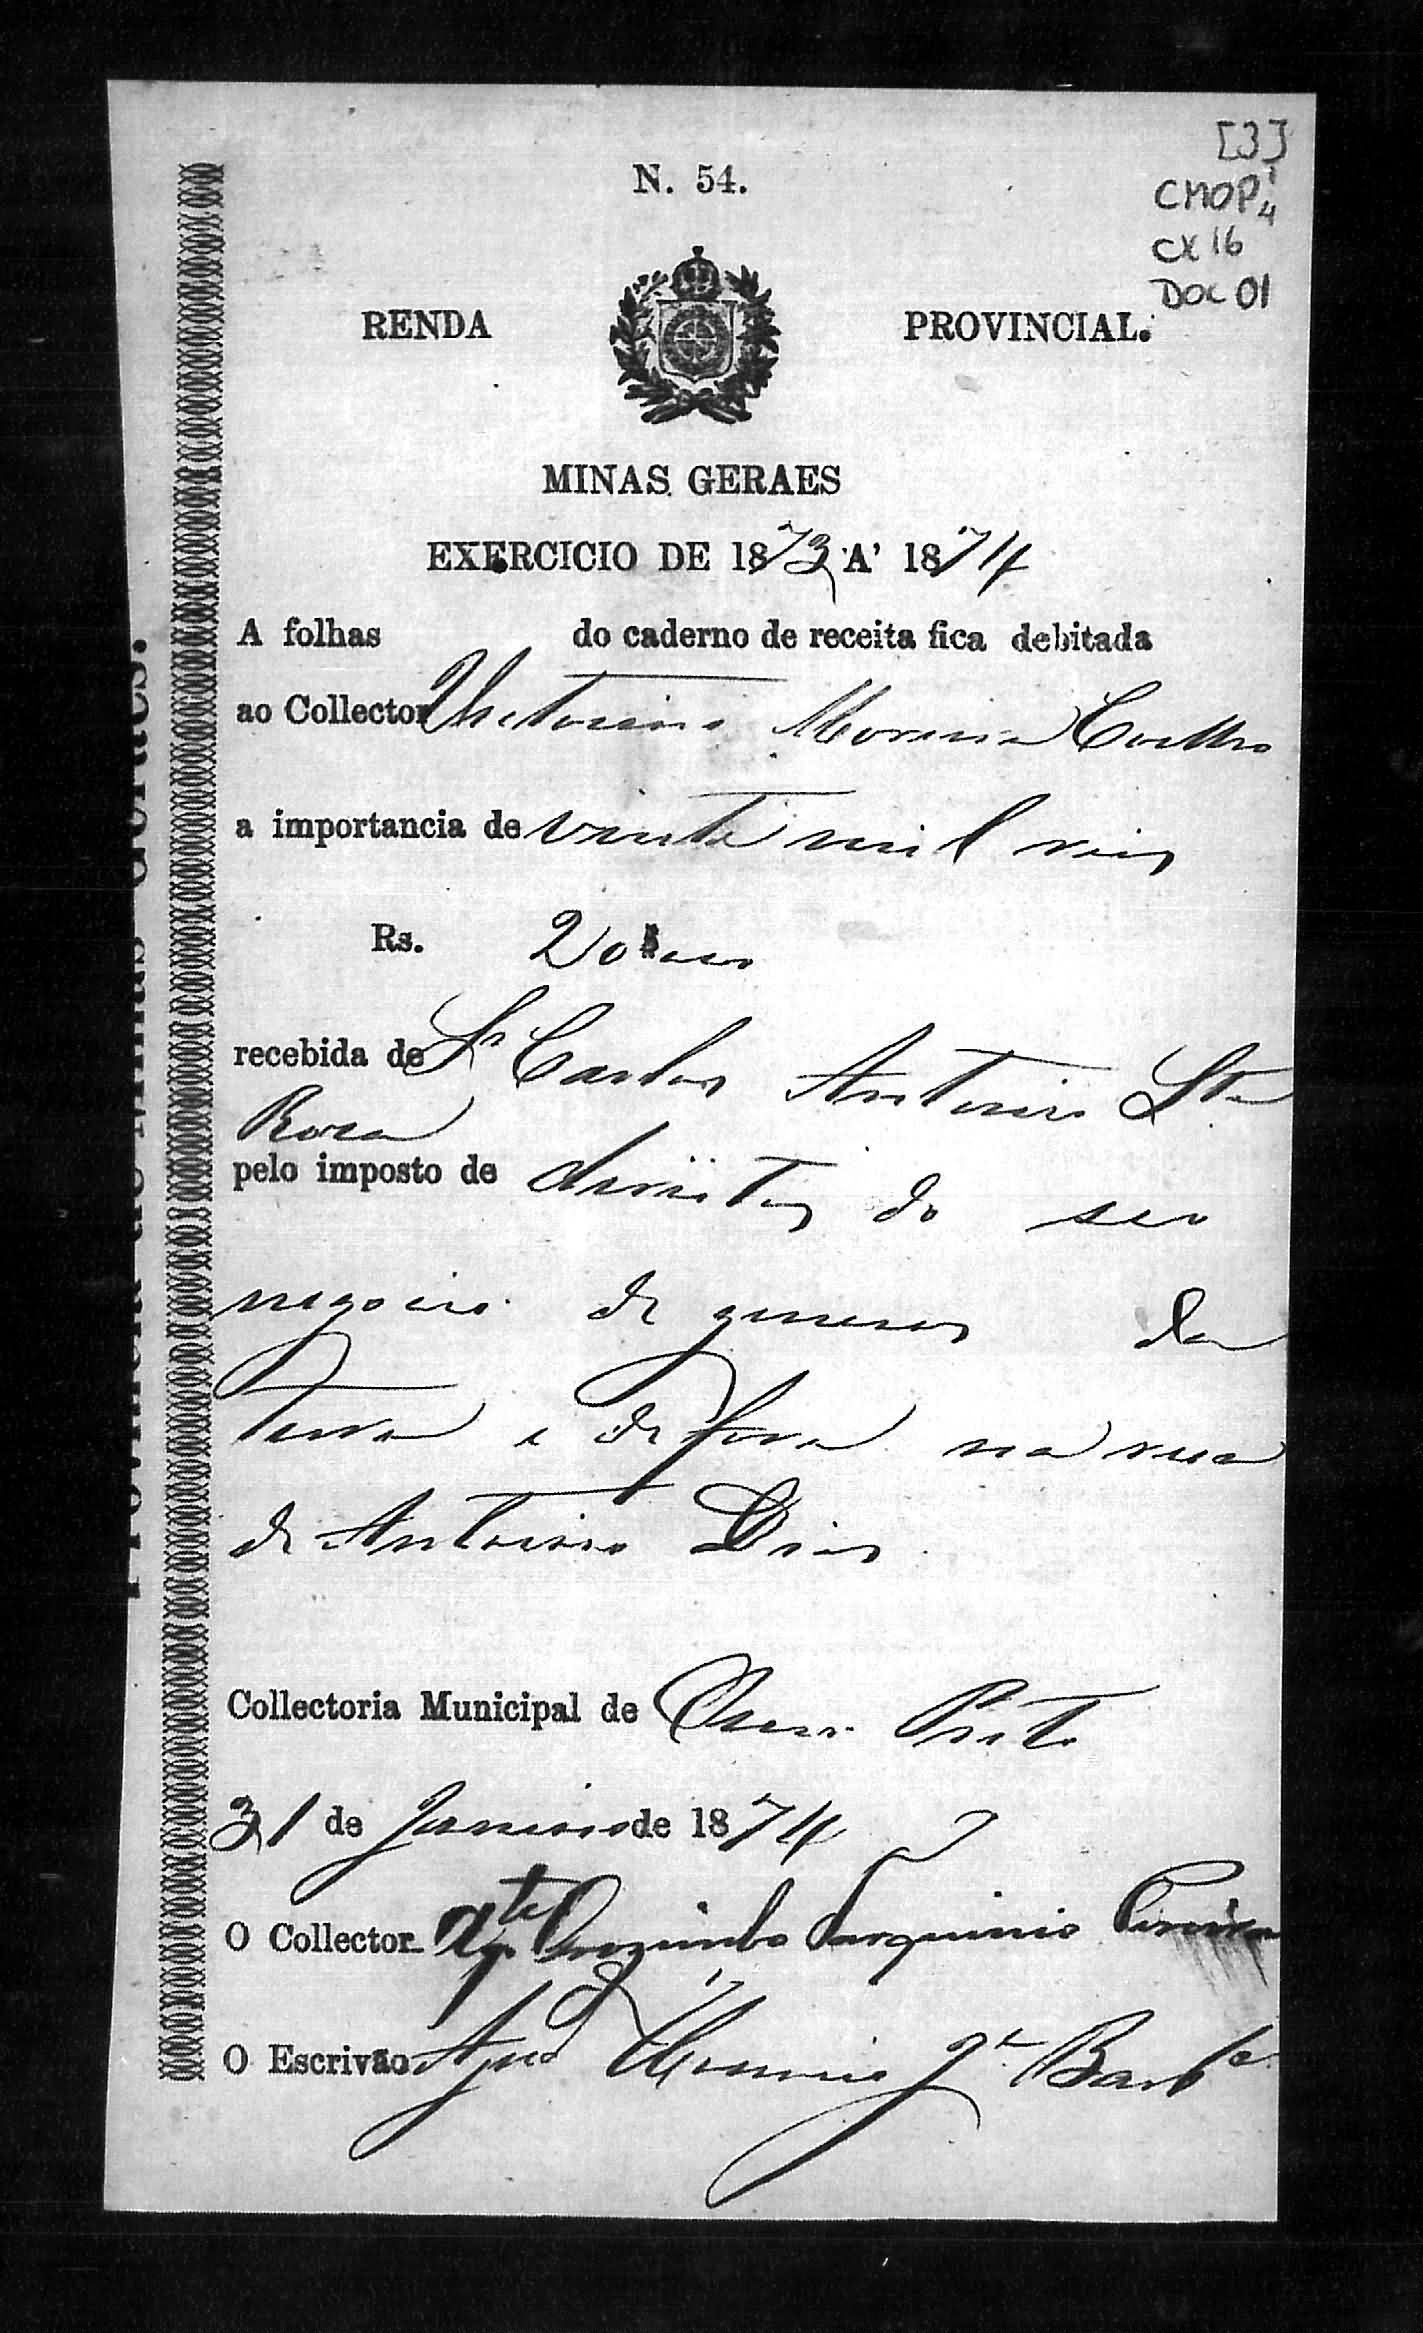 [3]
CMOP 1/4
CX 16
DOC 01
N. 54.
RENDA PROVINCIAL.
MINAS GERAES
EXERCICIO DE 1873 A' 1874
A folhas do caderno de receita fica debitada
ao Collector Victorino Moreira Coelho
a importancia de vinte mil reis
Rs. 20$000
recebida de Sr Carlos Antonio Sta
Rosa
pelo imposto de direitos do seo
negocio de generos da
terra e de fora na rua
de Antonio Dias
Collectoria Municipal de Ouro Preto
31 de Janeiro de 1874
O Collector Agte Orozimbo Tarquinio Pereira
O Escrivão Ajud
Provincia de Minas Geraes.